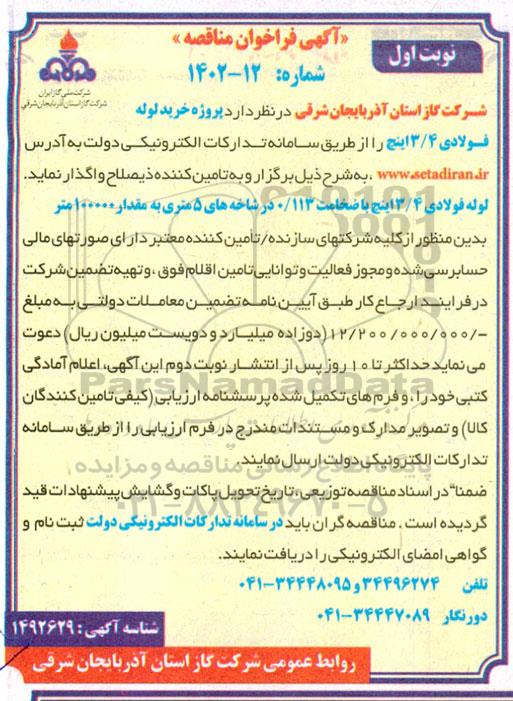 «آگهی فراخوان مناقصه»
نوبت اول
شماره: ۱۲-۱۴۰۲
شرکت ملی گاز ایران
شرکت گاز استان آذربایجان شرقی
شرکت گاز استان آذربایجان شرقی در نظر دارد پروژه خرید لوله
فولادی ۳/۴ اینچ را از طریق سامانه تدارکات الکترونیکی دولت به آدرس
www.setadiran.ir ، به شرح ذیل برگزار و به تامین کننده ذیصلاح واگذار نماید.
لوله فولادی ۳/۴ اینچ با ضخامت ۰/۱۱۳ در شاخه های ۵ متری به مقدار ۱۰۰۰۰۰ متر
بدین منظور از کلیه شرکتهای سازنده/تامین کننده معتبر دارای صورتهای مالی
حسابرسی شده و مجوز فعالیت و توانایی تامین اقلام فوق ، و تهیه تضمین شرکت
در فرایند ارجاع کار طبق آیین نامه تضمین معاملات دولتی به مبلغ
-/۱۲/۲۰۰/۰۰۰/۰۰۰ (دوزاده میلیارد و دویست میلیون ریال) دعوت
می نماید حداکثر تا ۱۰ روز پس از انتشار نوبت دوم این آگهی، اعلام آمادگی
کتبی خود را ، و فرم های تکمیل شده پرسشنامه ارزیابی (کیفی تامین کنندگان
کالا) و تصویر مدارک و مستندات مندرج در فرم ارزیابی را از طریق سامانه
تدارکات الکترونیکی دولت ارسال نمایند.
ضمنا" در اسناد مناقصه توزیعی ، تاریخ تحویل پاکات و گشایش پیشنهادات قید
گردیده است . مناقصه گران باید در سامانه تدارکات الکترونیکی دولت ثبت نام و
گواهی امضای الکترونیکی را دریافت نمایند.
تلفن ۳۴۴۹۶۲۷۴ و ۳۴۴۴۸۰۹۵-۰۴۱
دورنگار ۳۴۴۴۷۰۸۹-۰۴۱
شناسه آگهی : ۱۴۹۲۶۲۹
روابط عمومی شرکت گاز استان آذربایجان شرقی
ParsNamadData
پایگاه اطلاع رسانی مناقصه و مزایده
۰۲۱-۸۸۳۴۹۶۷۰-۵